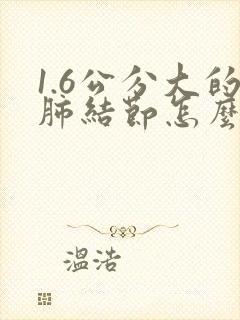 1.6公分大的
肺结節怎麼
溫浩